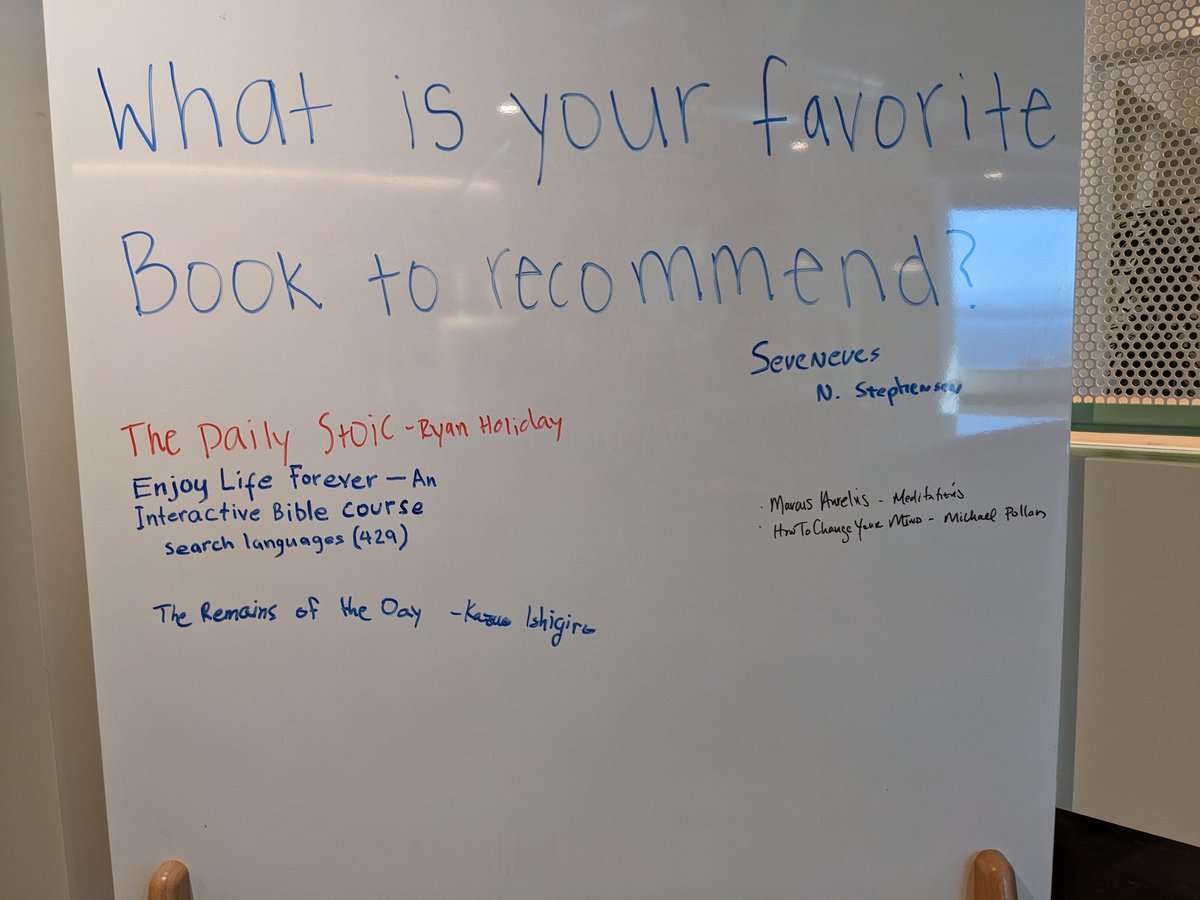 What is your favorite
Book to recommend?
Seveneves
N. Stephenson
The Daily Stoic - Ryan Holiday
Enjoy Life Forever - An
Interactive Bible course
search languages (429)
· Marcus Aurelius - Meditations
· How To Change Your Mind - Michael Pollan
The Remains of the Day - Kazuo Ishiguro